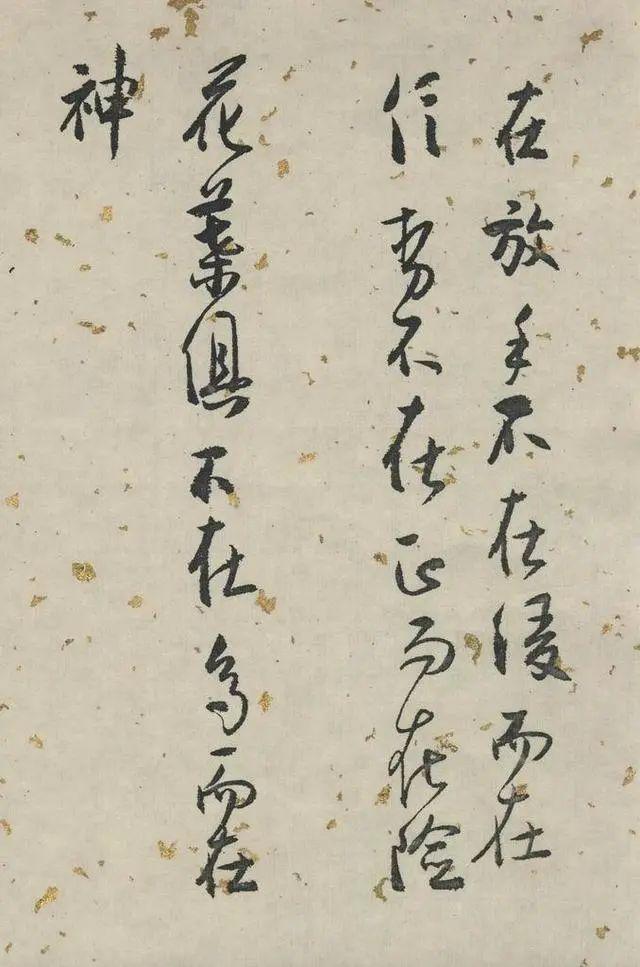 在放手不在緩而在
信勢不在正而在險
花葉俱不在多而在
神